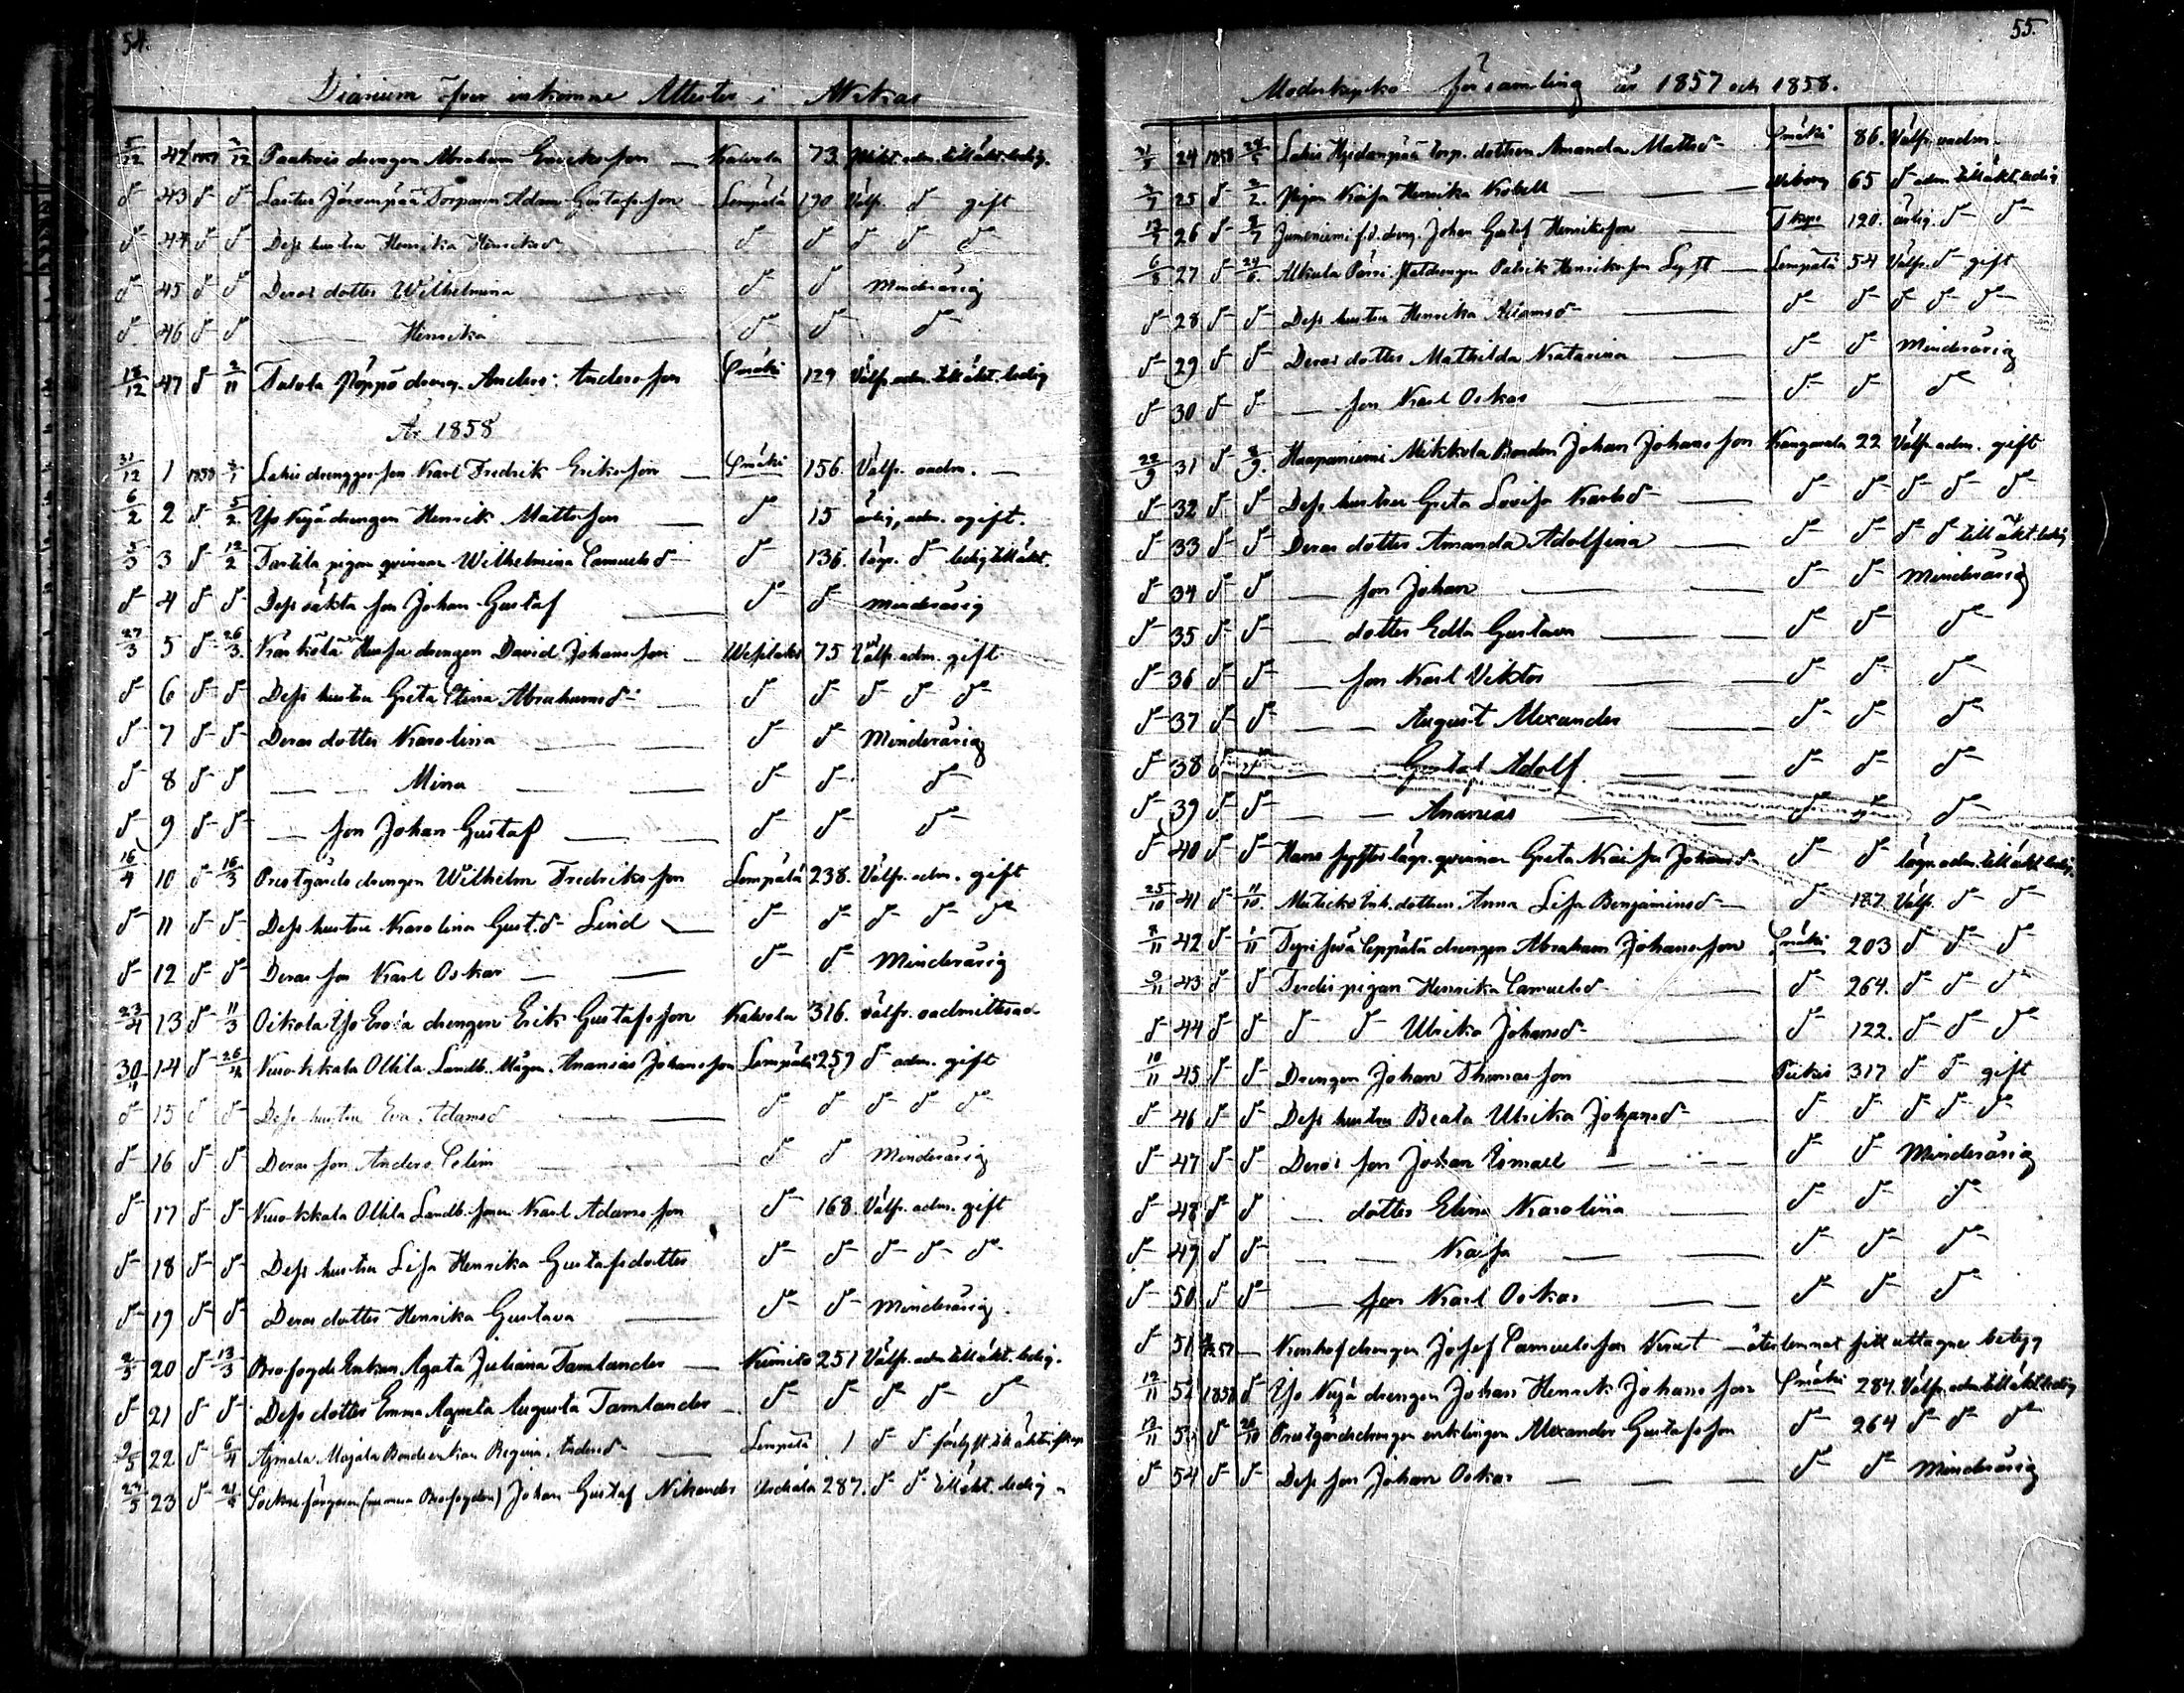 54.
Diarium öfver inkomne Attester i Akkas
5/12 42 1857 2/12 Paakois drengen Abraham Ericksson — Kalvola 73. adm. till äkt. ledig.
d 43 d d Järvenpää Torparen Adam Gustafsson Lempälä 190 Välfr. d gift
d 44 d d Dess hustru Henrika Henriksd d d d d d
d 45 d d Deras dotter Wilhelmina d d Minderårig
d 46 d d — Henrika — d d d
18/12 47 d 2/11 Talola Pöppö dreng. Anders Andersson Smäki 129 Välfr. adm. till äkt. ledig
År 1858
31/12 1 1858 2/1 Lahis drenggosson Karl Fredrik Eriksson — Smäki 156. Välfr. oadm. —
6/2 2 d 5/2 Yso Kyjä drengen Henrik Mattsson — d 15 ärlig, adm. ogift.
5/3 3 d 12/2 Tarttila pigan qvinnan Wilhelmina Samuelsd d 136. lägr. d ledig till äkt.
d 4 d d Dess oäkta son Johan Gustaf — d d minderårig
27/3 5 d 26/3 Kärkölä drengen David Johansson — Wesilaks 75 Välfr. adm. gift
d 6 d d Dess hustru Greta Stina Abrahamsd — d d d d d
d 7 d d Deras dotter Karolina — — d d Minderårig
d 8 d d — — Mina — — d d d
d 9 d d — son Johan Gustaf — — d d d
16/4 10 d 16/3 Prestgårds drengen Wilhelm Fredriksson Lempälä 238. Välfr. adm. gift
d 11 d d Dess hustru Karolina Gust.d Lind — d d d d d
d 12 d d Deras son Karl Oskar — — d d Minderårig
23/4 13 d 11/3 Oikola Yso Erola drengen Erik Gustafsson Kalvola 316. välfr. oadmitterad
30/4 14 d 26/4 Kurokkala Ollila Landb. Mågen Ananias Johansson Lempälä 257 d adm. gift
d 15 d d Dess hustru Eva Adamsd — d d d d d
d 16 d d Deras son Anders Selim d d Minderårig
d 17 d d Kurokkala Ollila Landb. sonen Karl Adamsson d 168 Välfr. adm. gift
d 18 d d Dess hustru Lisa Henrika Gustafsdotter d d d d d
d 19 d d Deras dotter Henrika Gustava — d d Minderårig.
2/5 20 d 13/3 Brofogde Enkan Agata Juliana Tamlander — Kumito 251 Välfr. adm. till äkt. ledig.
d 21 d d Dess dotter Emma Agneta Augusta Tamlander d d d d d
9/5 22 d 6/4 Ajmala Majala Bondeenkan Regina Andersd — Lempälä 1 d d
23/5 23 d 21/4 Johan Gustaf Nikander Urdiala 287. d d till äkt. ledig
55.
Moderkyrko församling år 1857 och 1858.
31/5 24 1858 24/5 Lahis Hjedanpää torp. dottren Amanda Mattsd Smäki 86. Välfr. oadm.
2/7 25 d 2/2. Pigan Kaisa Henrika Kobell — — Wiborg 65 d adm. till äkt. ledig
13/7 26 d 3/7 Jumeniemi f.d. dreng. Johan Gustaf Henriksson — 120. ärlig. d d
6/8 27 d 24/6. Alkula Pärri Statdrengen Patrik Henriksson Lyft — Lempälä 54 Välfr. d gift
d 28 d d Dess hustru Henrika Adamsd — d d d d d
d 29 d d Deras dotter Mathilda Katarina — d d Minderårig
d 30 d d — son Karl Oskar — — d d d
22/9 31 d 2/9. Haapaniemi Mikkola Bonden Johan Johansson Kangasala 22 Välfr. adm. gift
d 32 d d Dess hustru Greta Lovisa Karlsd — d d d d d
d 33 d d Deras dotter Amanda Adolfina — d d d d till äkt. ledig
d 34 d d — son Johan — — d d Minderårig
d 35 d d — dotter Edla Gustava — — d d d
d 36 d d — son Karl Viktor — — d d d
d 37 d d — — August Alexander — d d d
d 38 d d — — Gustaf Adolf — — d d d
d 39 d d — — Ananias — — d d d
d 40 d d Hans syster lägr. qvinnan Greta Kaisa Johansd d d lägr. adm. till äkt. ledig.
25/10 41 d 11/10. Inh. dottren Anna Lisa Benjaminsd — d 187. Välfr. d d
7/11 42 d 1/11 Seppälä drengen Abraham Johansson Smäki 203 d d d
9/11 43 d d pigan Henrika Samuelsd — d 264. d d d
d 44 d d d d Ulrika Johansd — d 122. d d d
10/11 45 d d Drengen Johan Thomasson — Pirkis 317 d d gift
d 46 d d Dess hustru Beata Ulrika Johansd — d d d d d
d 47 d d Deras son Johan Ismael — — — d d Minderårig
d 48 d d — dotter Elina Karolina — d d d
d 49 d d — — Kajsa — — d d d
d 50 d d — son Karl Oskar — — d d d
d 51 — Kronhof drengen Josef Samuelsson — återlemnat sitt uttagne betyg
12/11 52 1858 d Yso Kyjä drengen Johan Henrik Johansson Smäki 284. Välfr. adm. till äkt. ledig
12/11 53 d 26/10 Prestgårdsdrengen enklingen Alexander Gustafsson d 264 d d d
d 54 d d Dess son Johan Oskar — — d d Minderårig